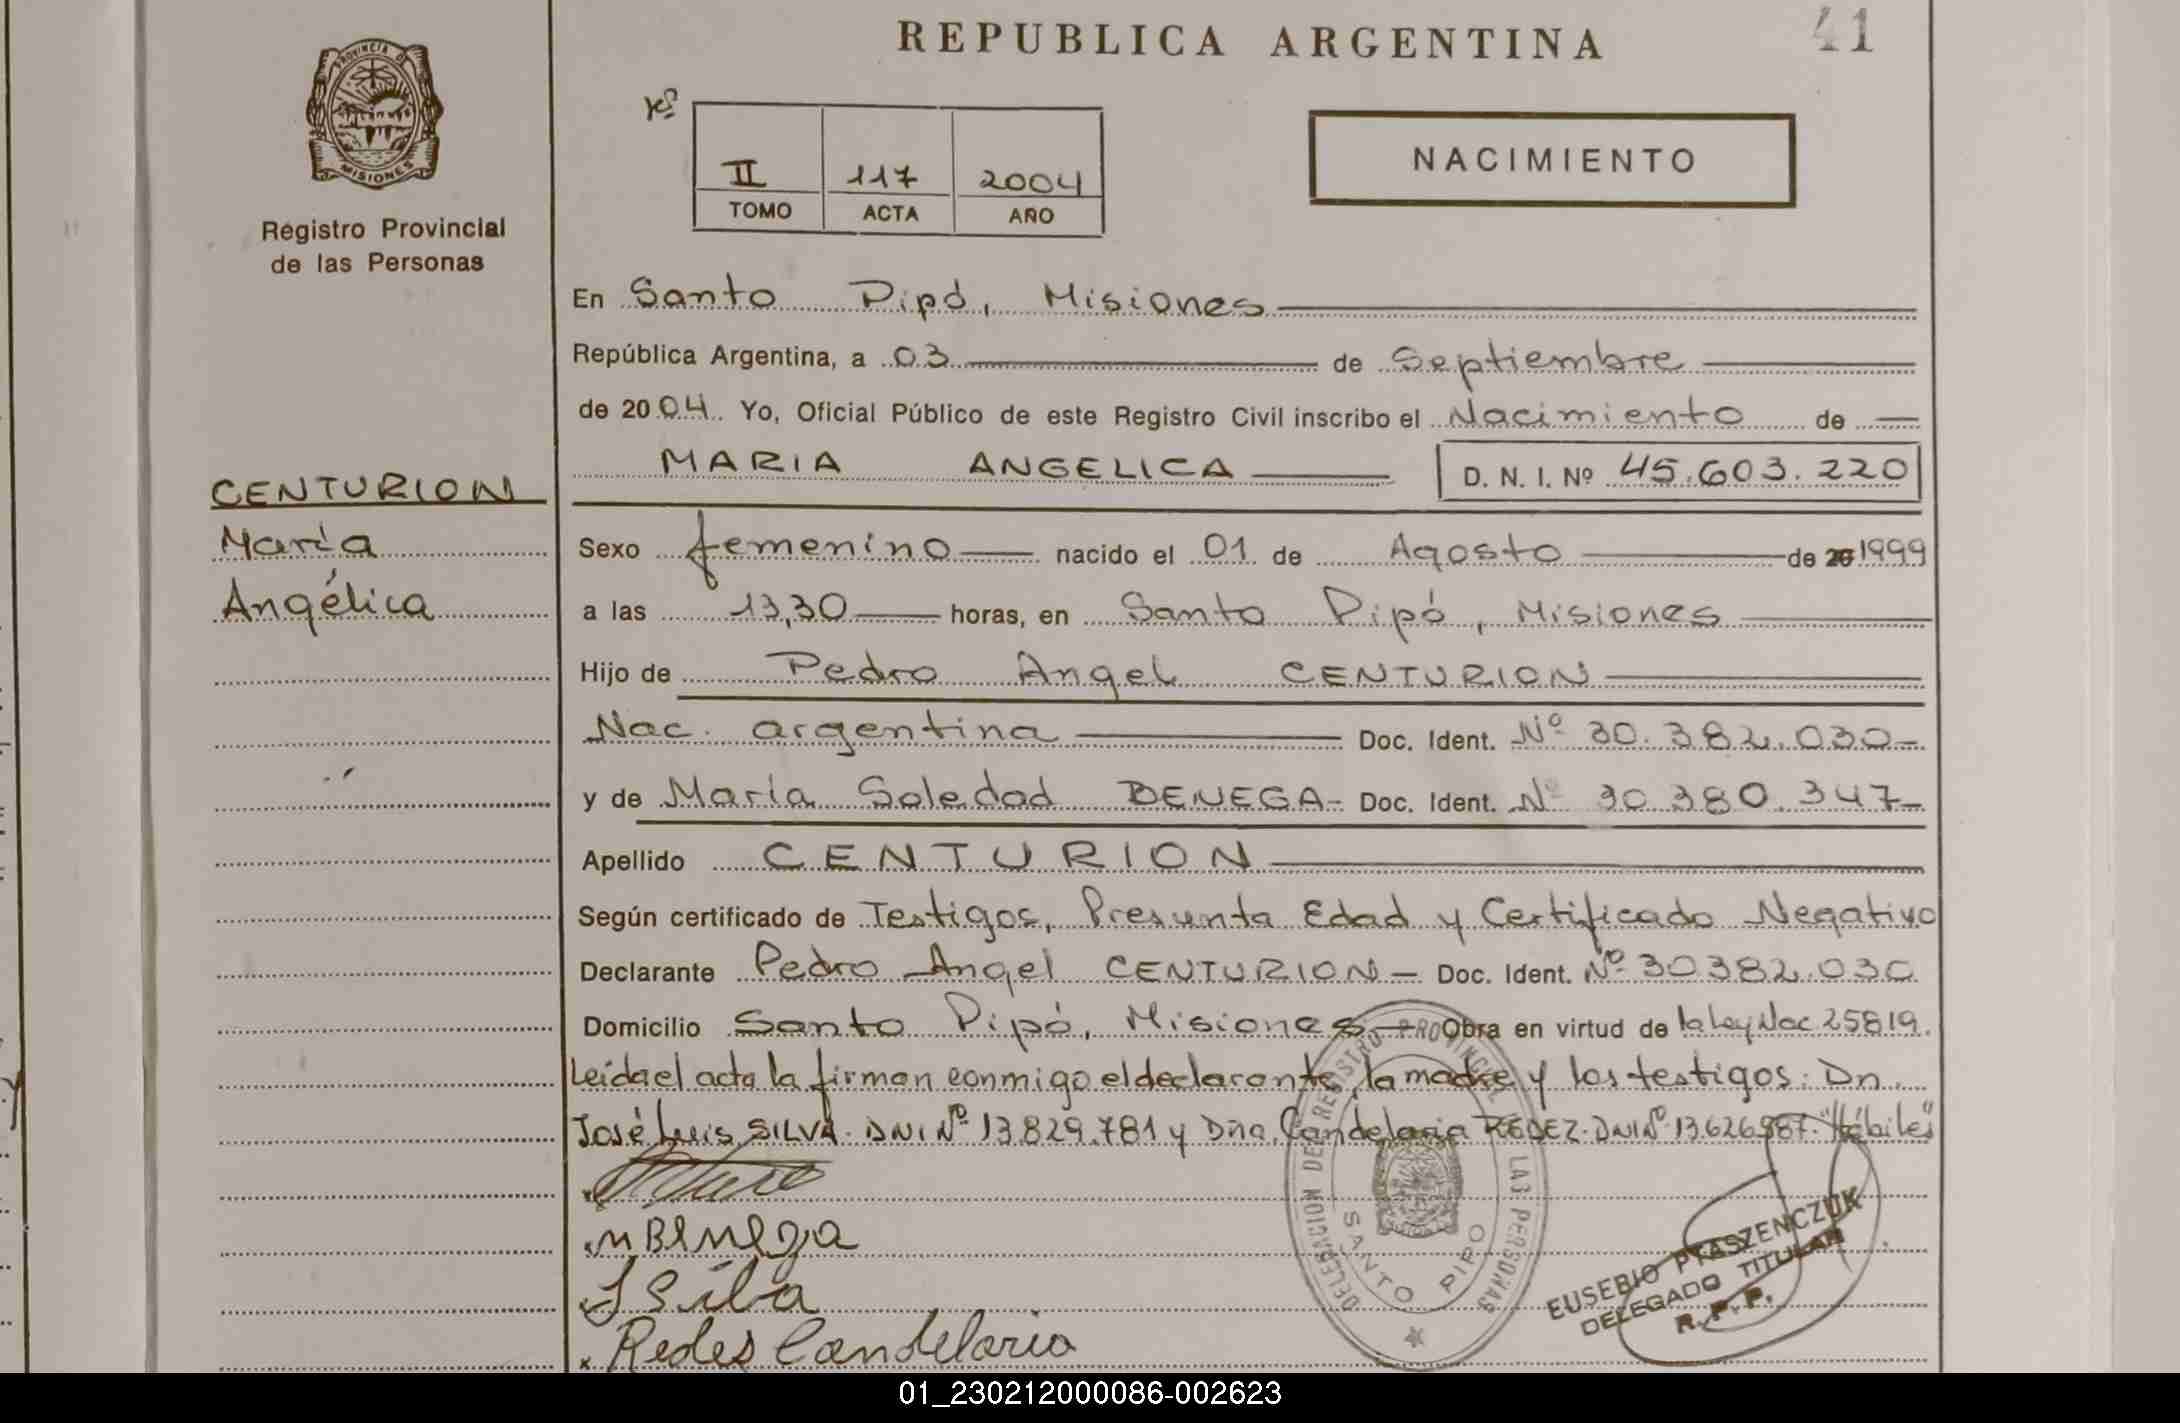 REPUBLICA ARGENTINA
41
PROVINCIA DE
MISIONES
Registro Provincial
de las Personas
Nº
II 117 2004
TOMO ACTA AÑO
NACIMIENTO
En Santo Pipó, Misiones
República Argentina, a 03 de Septiembre
de 2004. Yo, Oficial Público de este Registro Civil inscribo el Nacimiento de
MARIA ANGELICA D. N. I. Nº 45.603.220
CENTURION
María
Angélica
Sexo femenino nacido el 01 de Agosto de 20 1999
a las 13,30 horas, en Santo Pipó, Misiones
Hijo de Pedro Angel CENTURION
Nac. argentina Doc. Ident. Nº 30.382.030-
y de María Soledad BENEGA- Doc. Ident. Nº 30.380.347-
Apellido CENTURION
Según certificado de Testigos, Presunta Edad y Certificado Negativo
Declarante Pedro Angel CENTURION- Doc. Ident. Nº 30382.030
Domicilio Santo Pipó, Misiones - Obra en virtud de la Ley Nac 25819.
Leída el acta la firman conmigo el declarante, la madre y los testigos: Dn.
José Luis SILVA. DNI Nº 13.829.781 y Dña. Candelaria REDEZ. DNI Nº 13.626.987. "Hábiles"
M Benega
J Silba
Redes Candelaria
DELEGACION DE REGISTRO PROVINCIAL DE LAS PERSONAS
SANTO PIPO
EUSEBIO PTASZENCZUK
DELEGADO TITULAR
R. P. P.
01_230212000086-002623